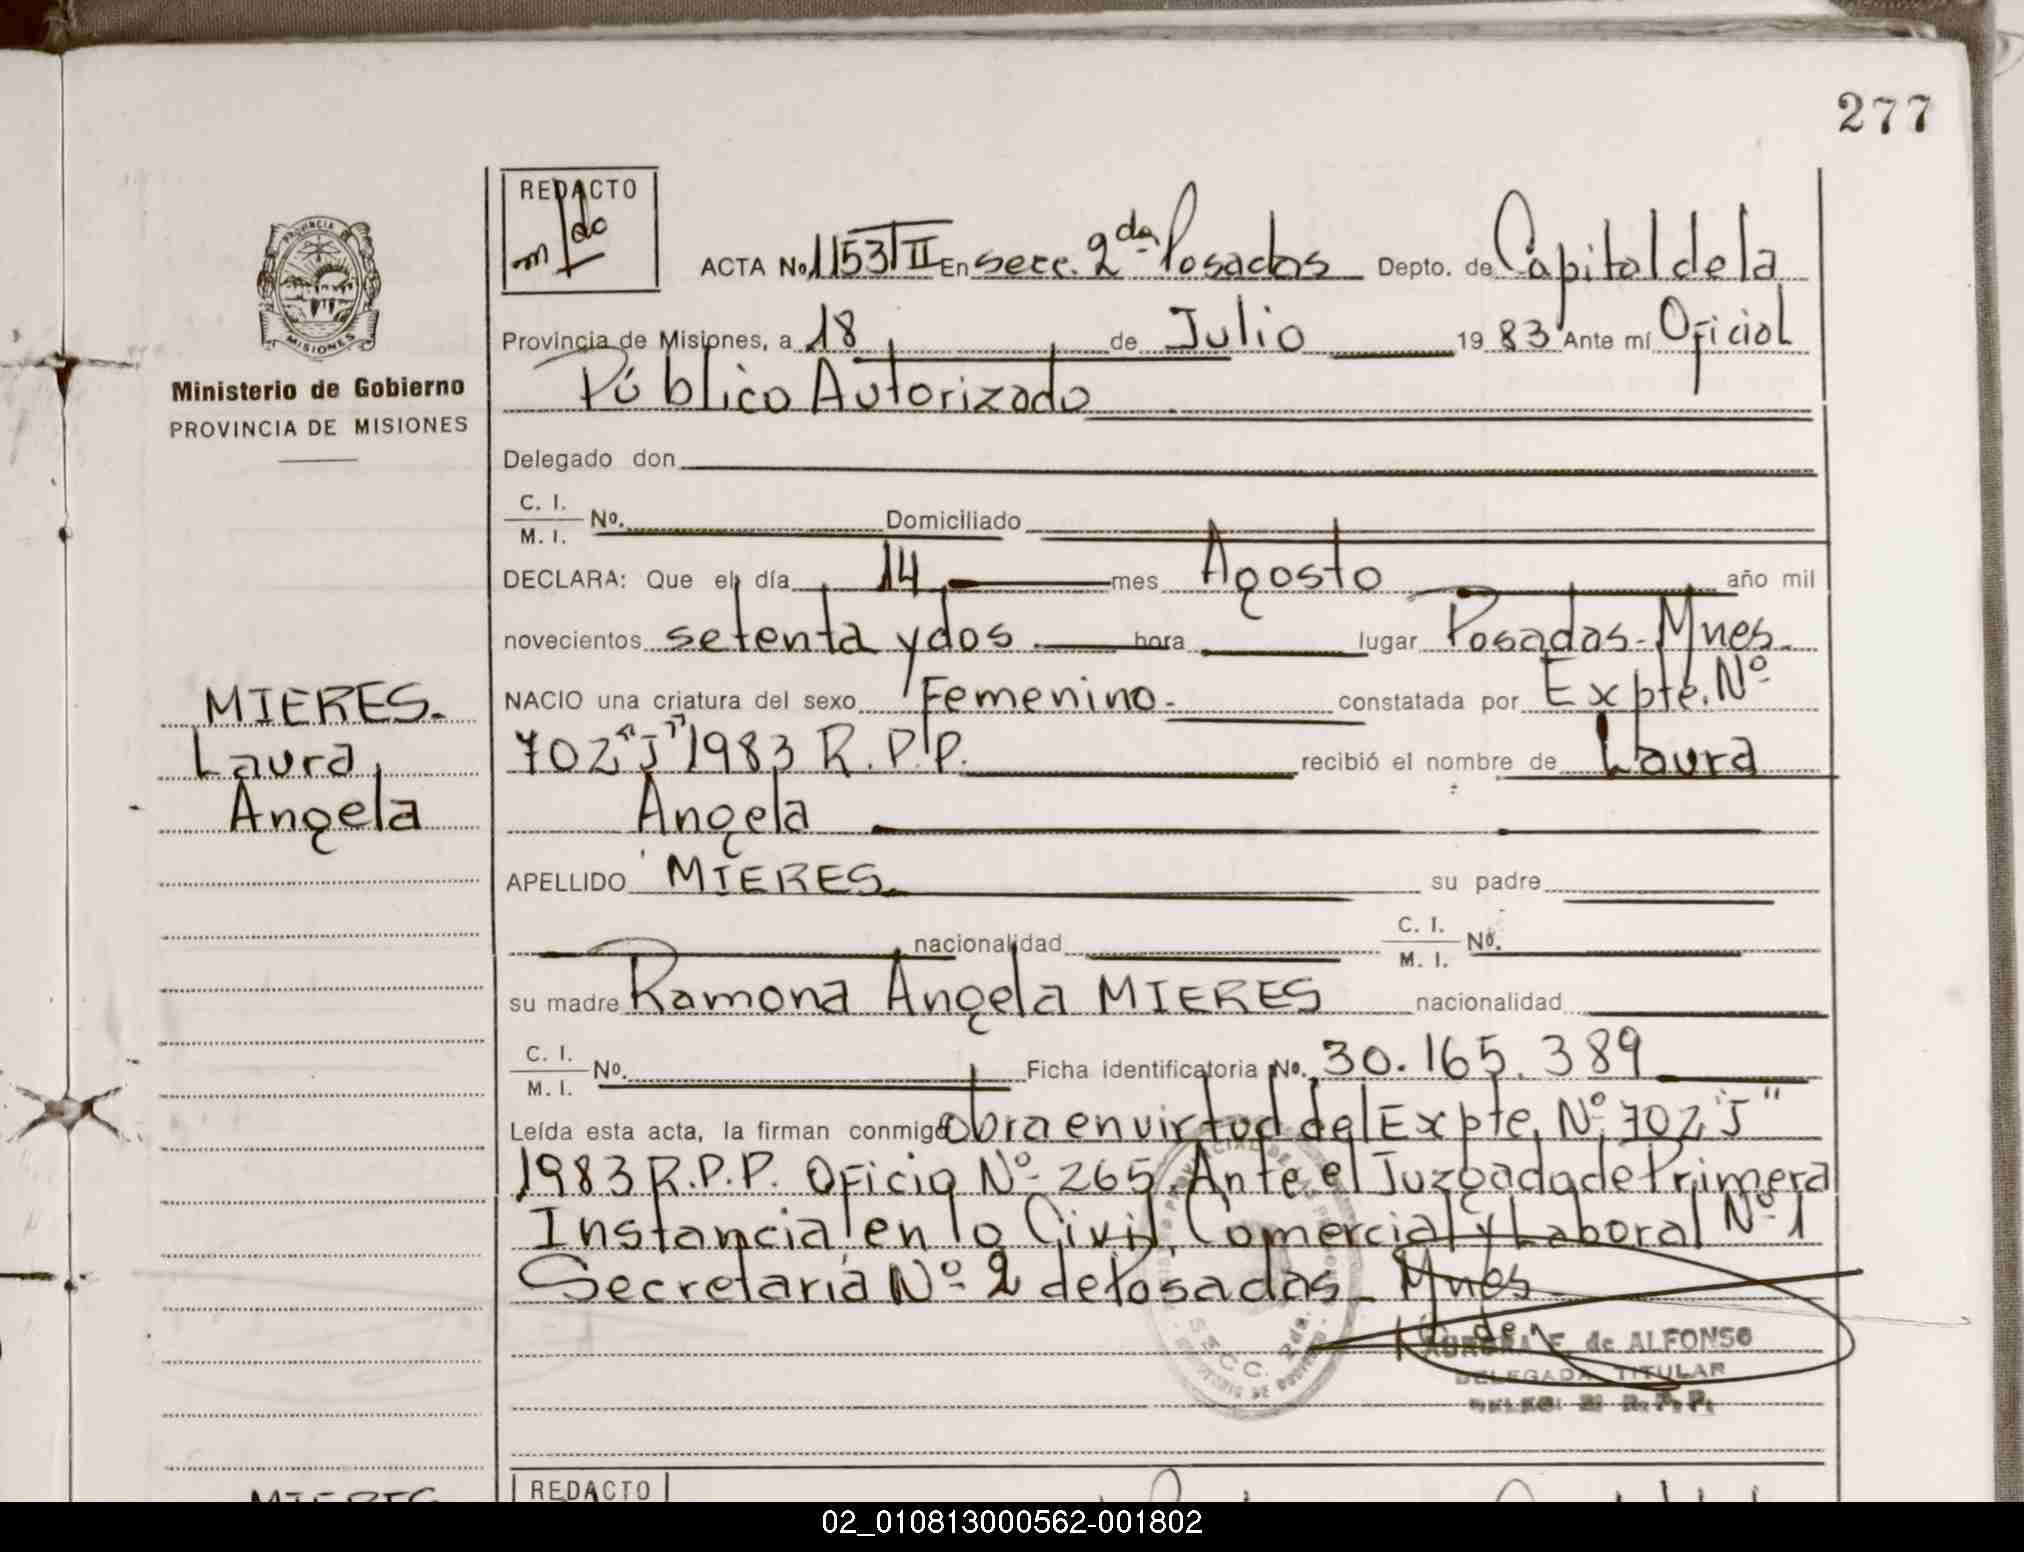 277
REDACTO
ACTA No. 1153 T II En secc. 2da Posadas Depto. de Capital de la
Provincia de Misiones, a 18 de Julio 1983 Ante mí Oficial
Público Autorizado
PROVINCIA DE
MISIONES
Ministerio de Gobierno
PROVINCIA DE MISIONES
Delegado don
C. I.
M. I. No. Domiciliado
DECLARA: Que el día 14 mes Agosto año mil
novecientos setenta y dos hora lugar Posadas-Mnes.
MIERES.
NACIO una criatura del sexo Femenino. constatada por Expte. Nº
Laura
702 "J" 1983 R.P.P. recibió el nombre de Laura
Angela
Angela
APELLIDO MIERES. su padre
nacionalidad C. I.
M. I. No.
su madre Ramona Angela MIERES nacionalidad
C. I.
M. I. No. Ficha identificatoria No. 30.165.389
Leída esta acta, la firman conmigo obra en virtud del Expte. Nº 702 "J"
1983 R.P.P. Oficio Nº 265. Ante el Juzgado de Primera
Instancia en lo Civil, Comercial y Laboral Nº 1
Secretaría Nº 2 de Posadas - Mnes
SECC. 2da.
AURORA E. de ALFONSO
DELEGADA TITULAR
R. P. P.
REDACTO
MIERES
02_010813000562-001802